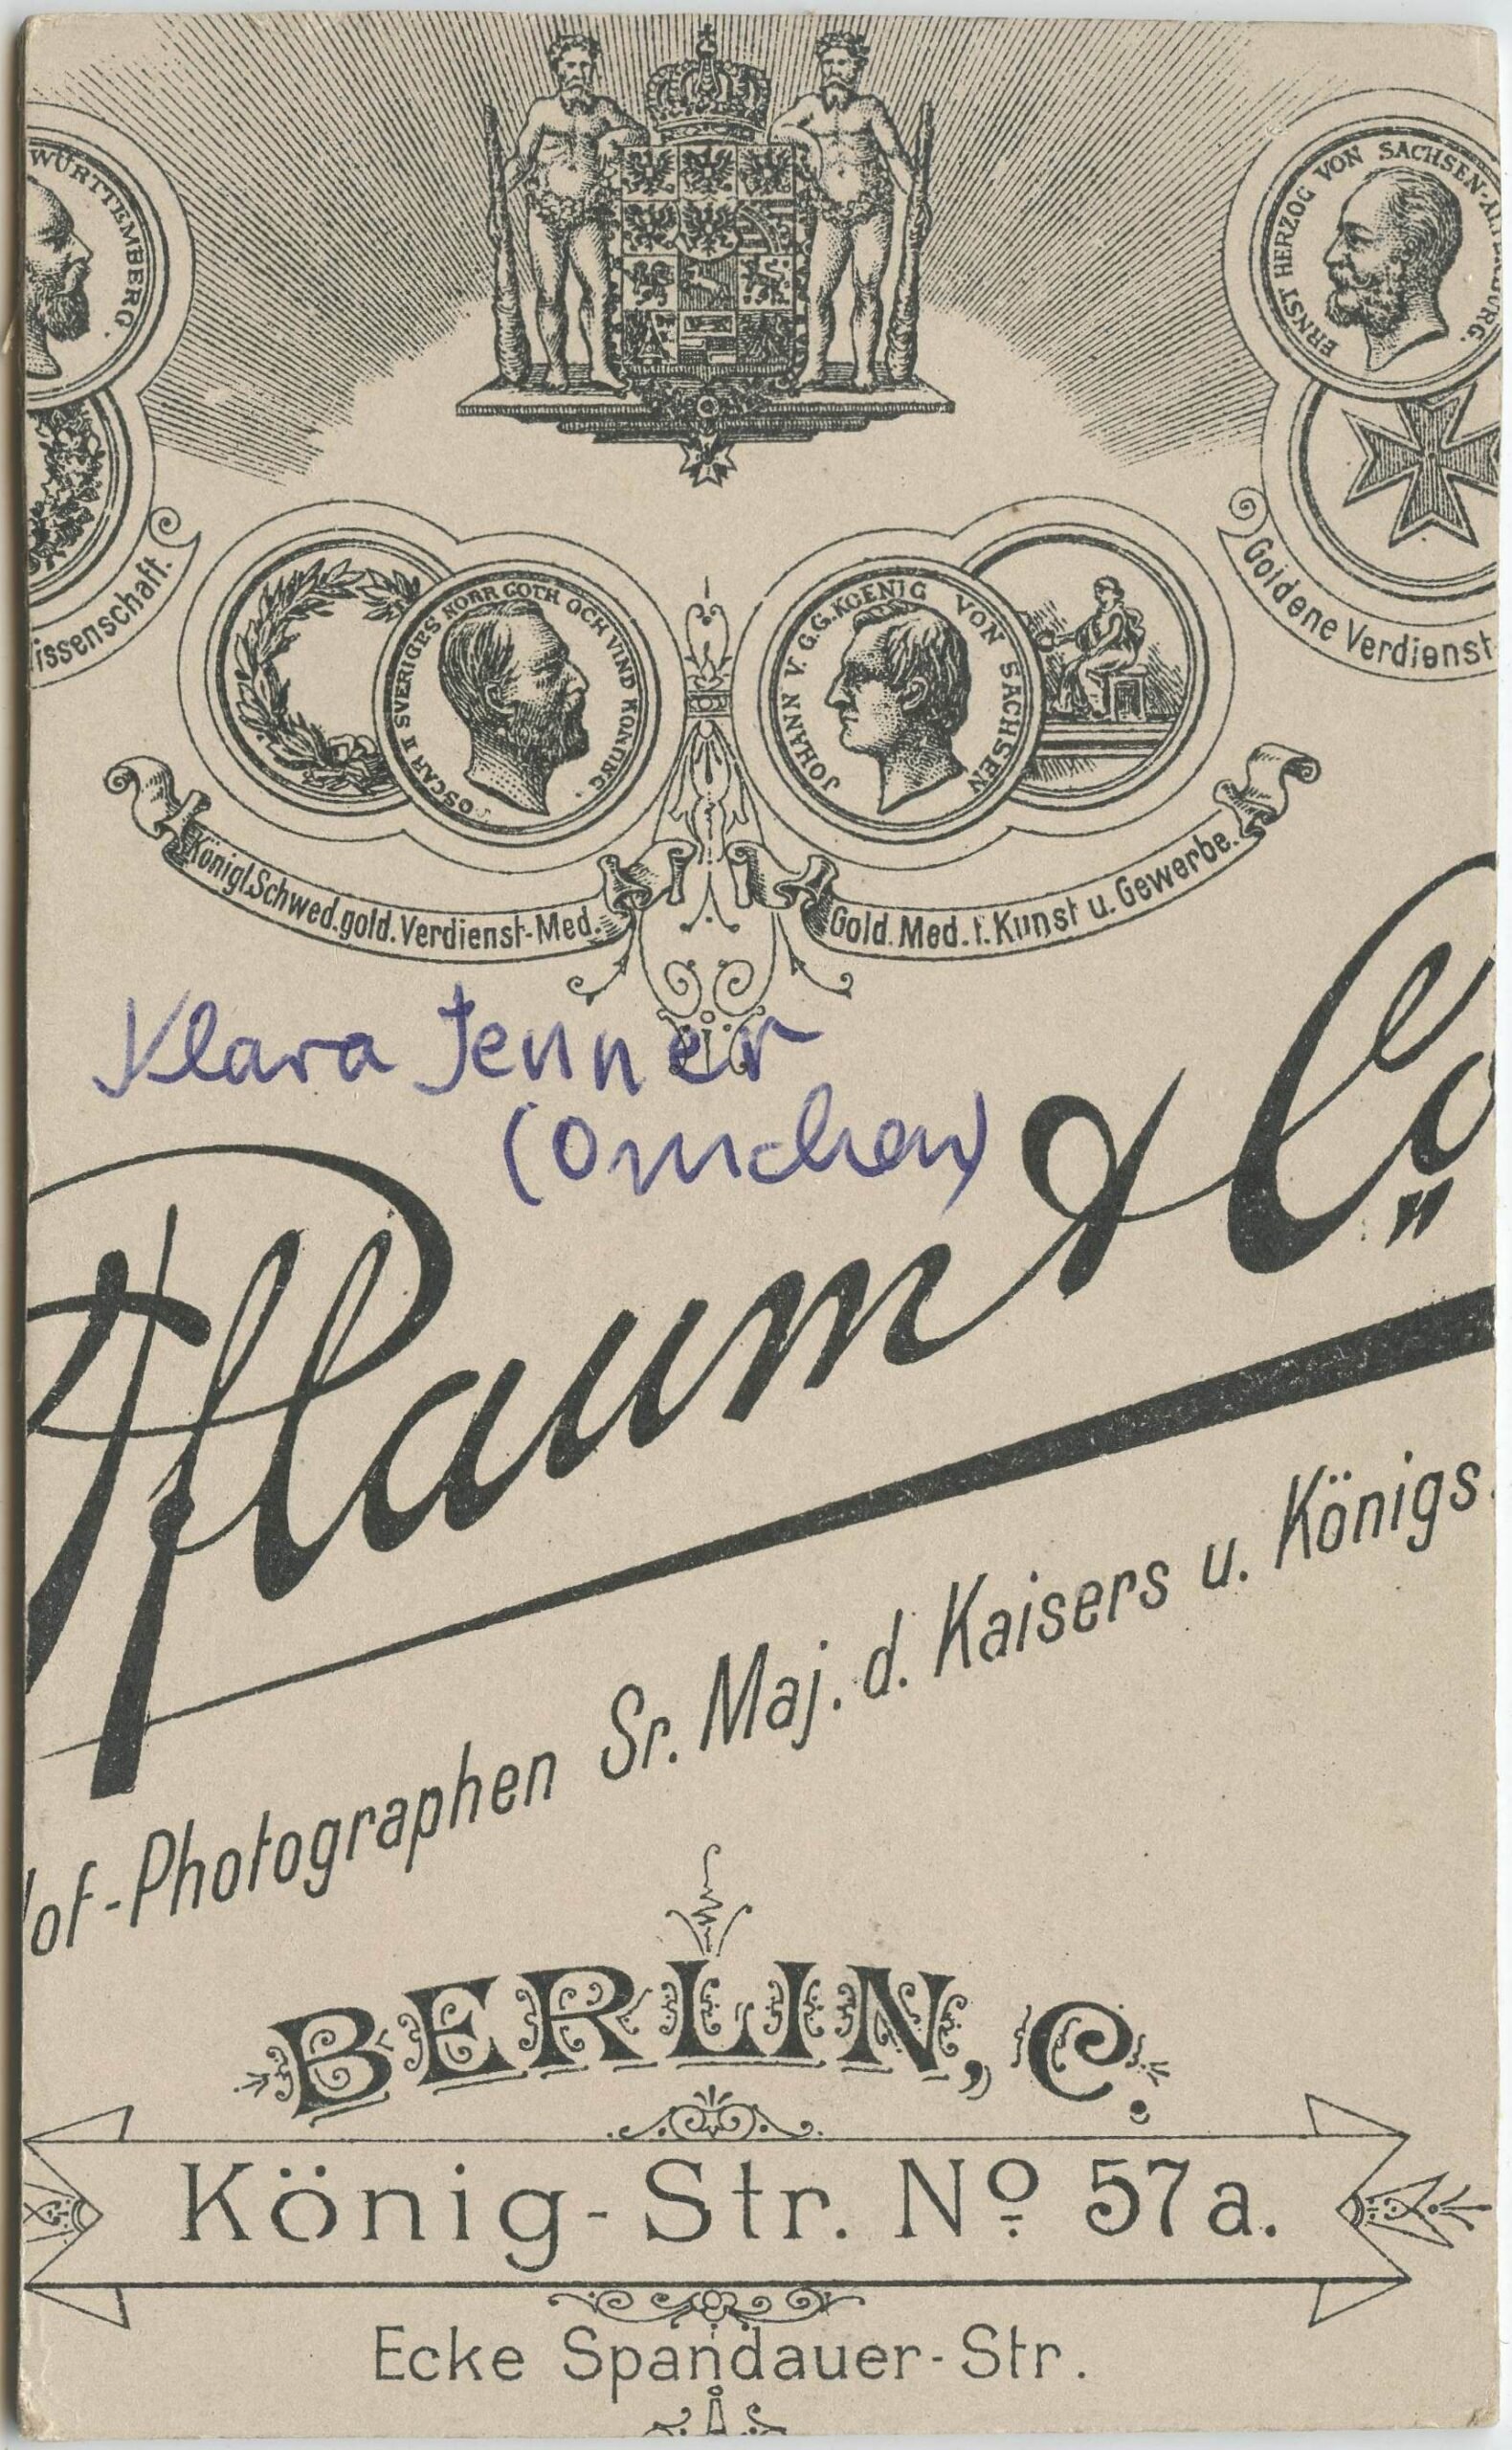 WÜRTTEMBERG.
ERNST HERZOG VON SACHSEN-ALTENBURG.
issenschaft.
Goldene Verdienst
OSCAR II SVERIGES NORR. GÖTH. OCH VEND. KONUNG.
JOHANN V. G. G. KOENIG VON SACHSEN
Königl. Schwed. gold. Verdienst-Med.
Gold. Med. f. Kunst u. Gewerbe.
Klara Jenner
(Omchen)
Pflaum & Co
Hof-Photographen Sr. Maj. d. Kaisers u. Königs.
BERLIN, C.
König-Str. No 57a.
Ecke Spandauer-Str.